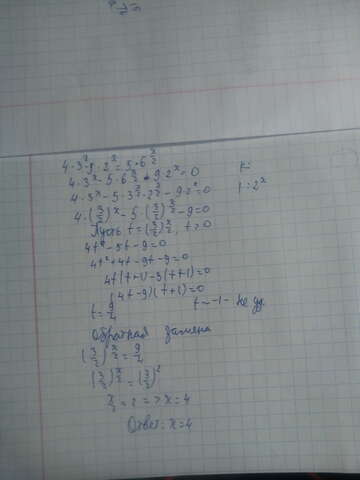 4·3^x-9·2^x=5·6^{x/2}
4·3^x-5·6^{x/2}-9·2^x=0
4·3^x-5·3^{x/2}·2^{x/2}-9·2^x=0 |:2^x
4·(3/2)^x-5·(3/2)^{x/2}-9=0
Пусть t=(3/2)^{x/2}, t>0
4t²-5t-9=0
4t²+4t-9t-9=0
4t(t+1)-9(t+1)=0
(4t-9)(t+1)=0
t=9/4 t=-1- не уд.
Обратная замена
(3/2)^{x/2}=9/4
(3/2)^{x/2}=(3/2)^2
x/2=2=>x=4
Ответ: x=4